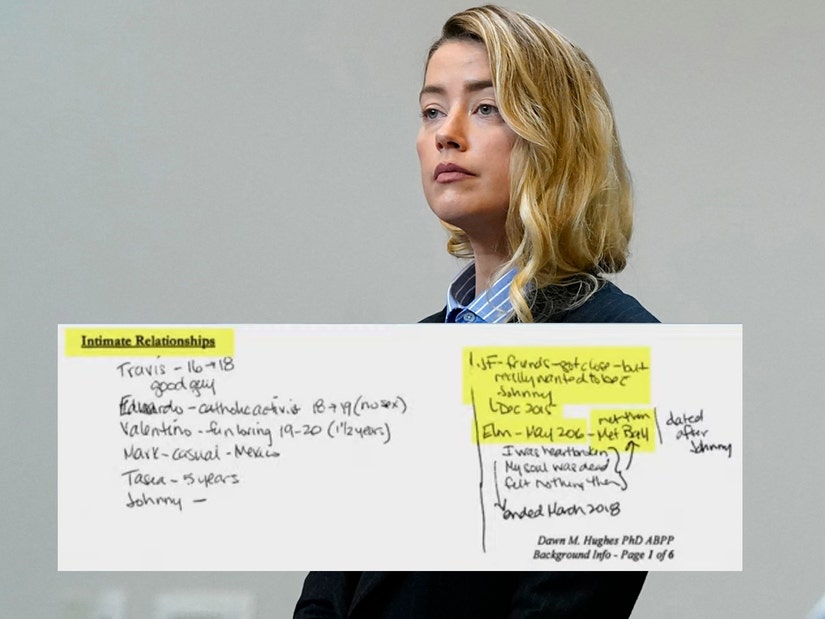 Intimate Relationships
Travis - 16→18
good guy
Eduardo - catholic activis 18→19 (no sex)
Valentino - fun loving 19-20 (1½ years)
Mark - casual - Mexico
Tasea - 5 years
Johnny -
1. JF - friends - got close - but
really wanted to be c
Johnny
Dec 2015
Elon - May 206 - Met Ball
met then
dated
after
Johnny
I was heartbroken
My soul was dead
felt nothing then
ended March 2018
Dawn M. Hughes PhD ABPP
Background Info - Page 1 of 6